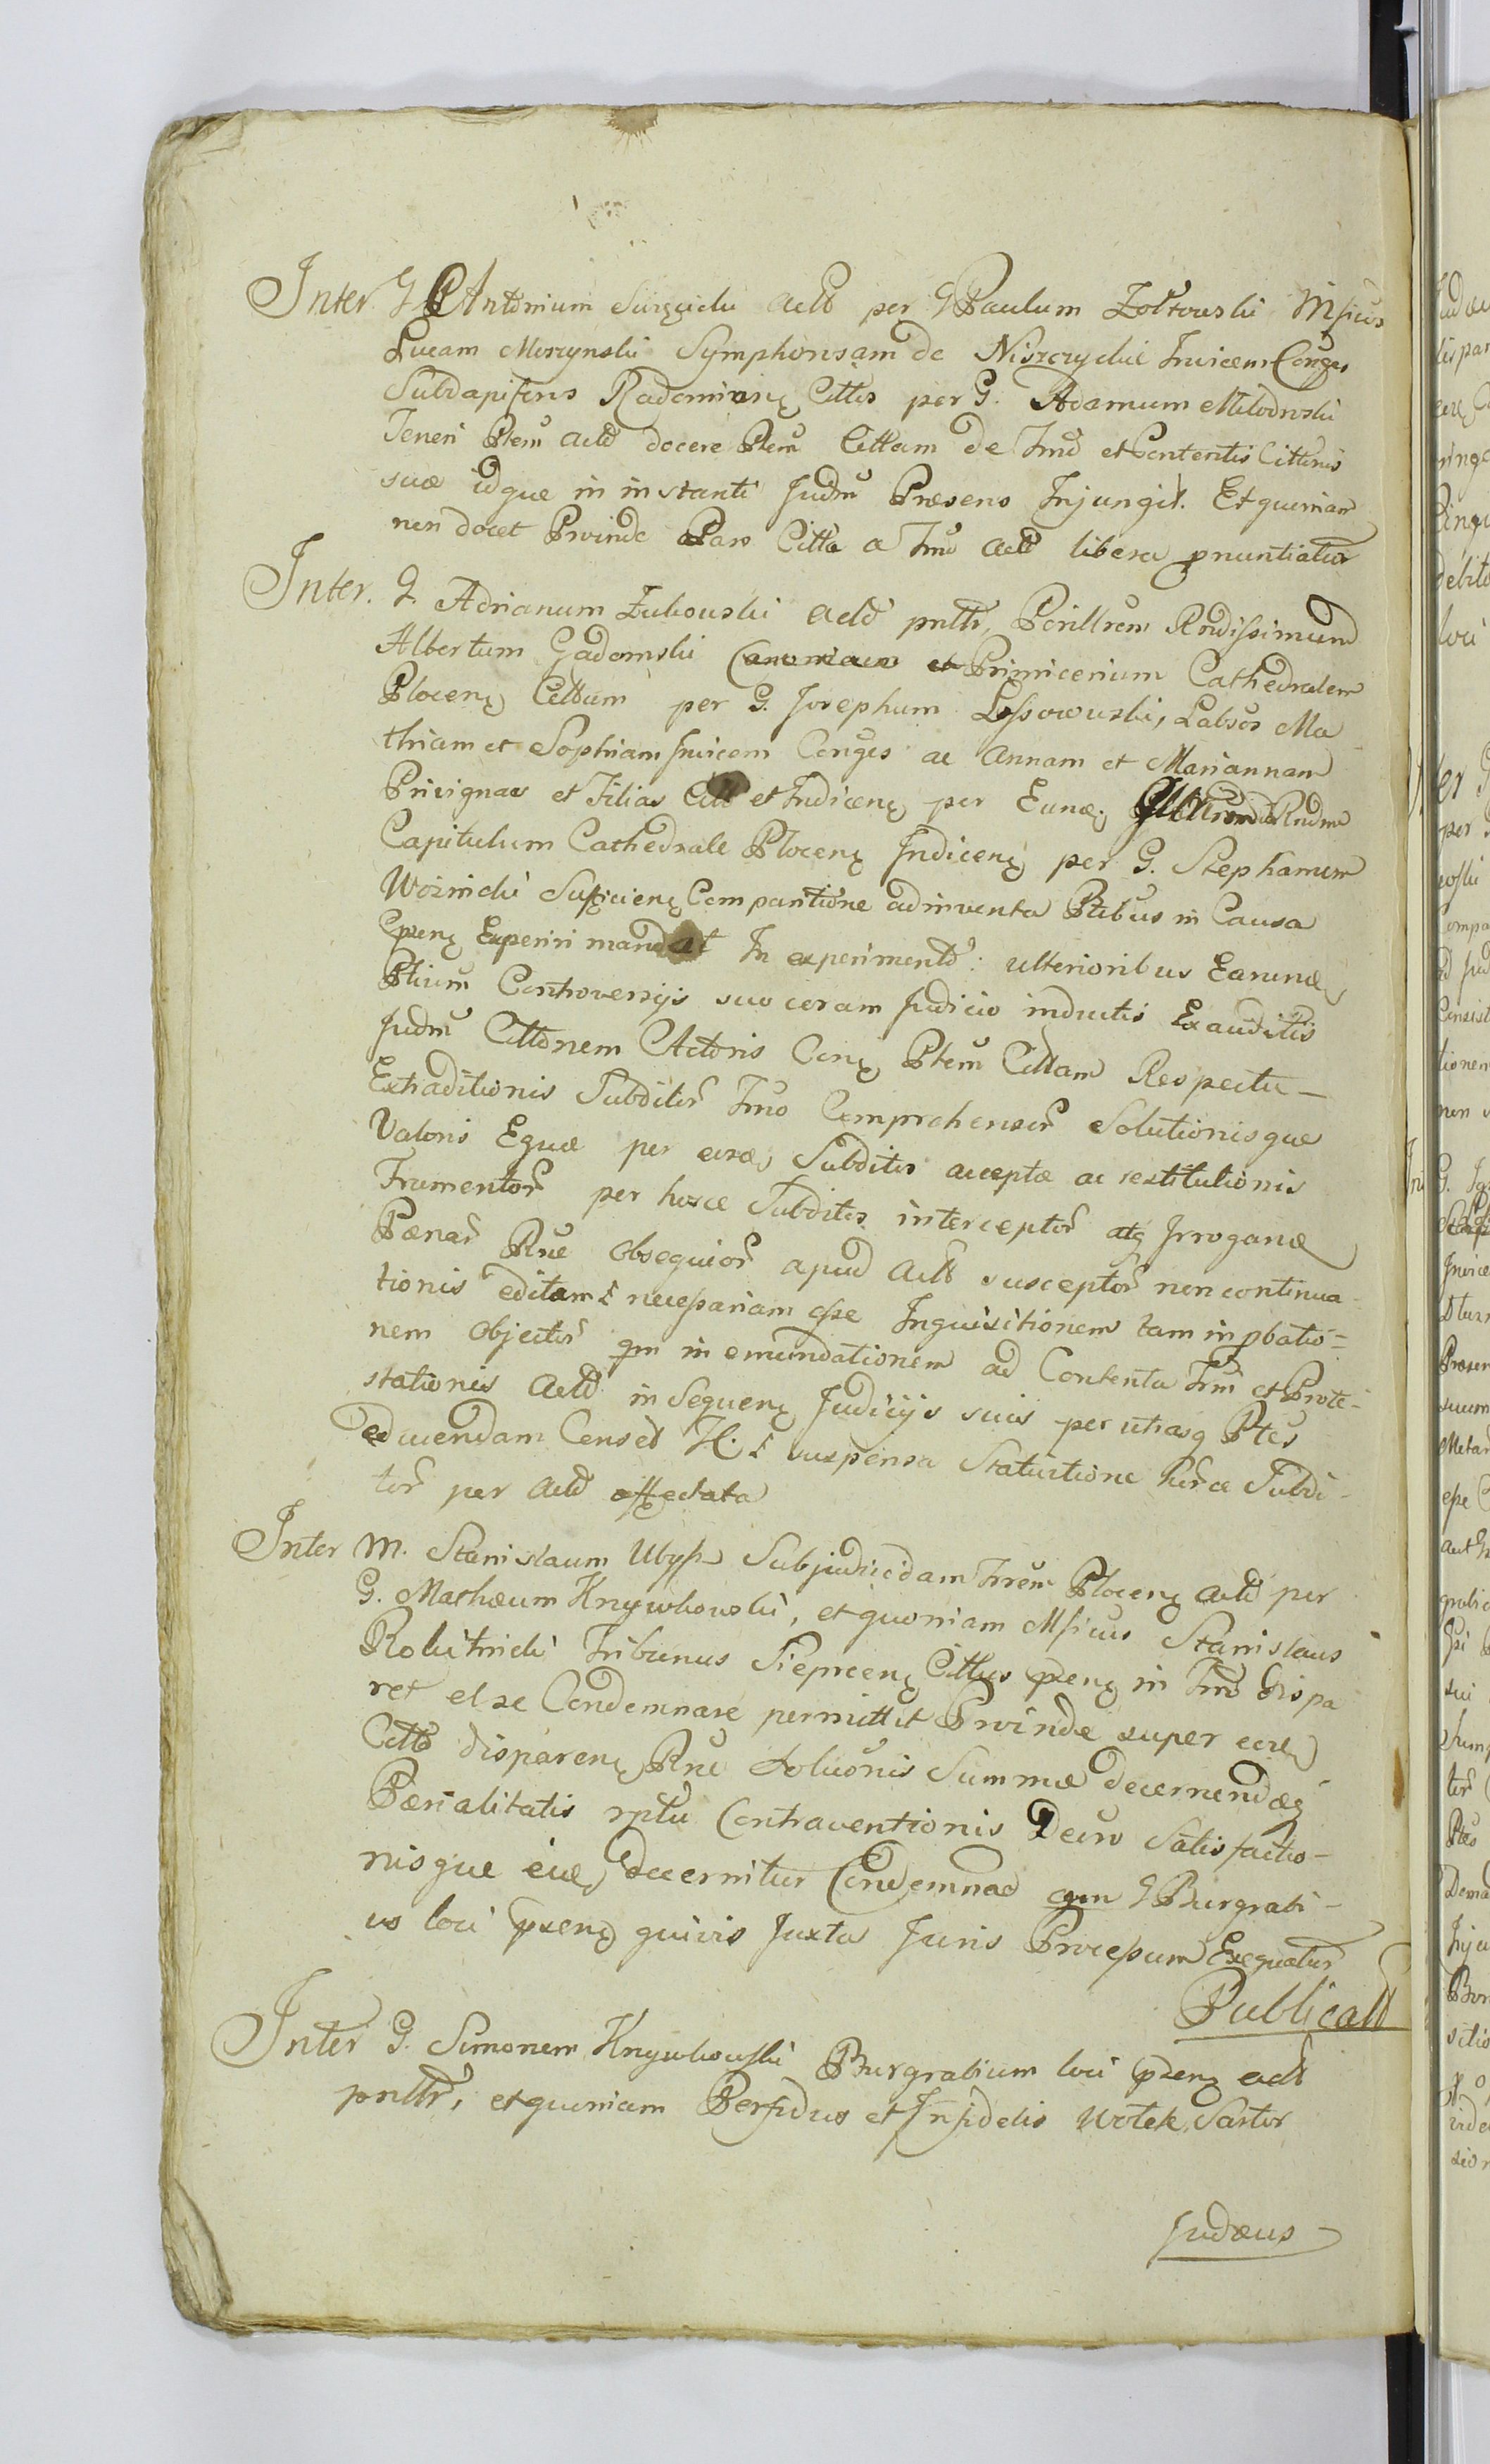 Inter G Antonium Surzycki actt per G Paulum Zołtowski Mficos
Lucam Mierzynski Symphorosam de Niszczyckie Invicem Conges
Subdapiferos Radomiens Cittos per G. Adamum Młodowski
Teneri Ptem actt docere Ptem Cittam de Tmo et Contentis Cittnis
suæ idque in instanti Judm Præsens Injungit. Et quoniam
non docet Proinde Pars Citta a Tmo actt libera pnuntiatur
Inter. G. Adrianum Zukowski actt pnltr, Perillrem Rndissimum
Albertum Gadomski Canonicum et Primicerium Cathedralem
Plocens Cittum per G. Josephum Lossowski, Labsos Ma
thiam et Sophiam Invicem Conges ac Annam et Mariannam
Privignas et Filias Citt et Indicens per Eund, Rndm
Capitulum Cathedrale Plocens Indicens per G. Stephanum
Woźnicki Sufficiens Comparitione adinventa Ptibus in Causa
præns Experiri mandat In experimento: ulterioribus Earund
Ptium Controversijs suo coram Judicio inductis Exauditis
Judm Cittonem Actoris Cons Ptem Cittam Respectu
Extraditionis Subditor Tmo Comprehensor Solutionisque
Valoris Equæ per eosd Subditos acceptæ ac restitutionis
Frumentor per hosce Subditos interceptor atq Irrogand
Pænar Rne Obsequior apud Actt susceptor non continua
tionis editam necessariam esse Inquisitionem tam in pbatio=
nem Objector qm in emundationem ad Contenta Tmi et Prote-
stationis Actt in Sequens Judicijs suis per utrasq Ptes
educendam Censet H. suspensa Statuitione horce Subdi-
tor per Actt affectata
Inter M. Stanislaum Ubysz Subjudicem Trrem Plocens actt per
G. Mathæum Knywkowski, et quoniam Mficus Stanislaus
Rokitnicki Tribunus Sieprcens Cittus præns in Tmo dispa
ret et se Condemnare permittit Proinde super eod
Citto disparens Rne Soluonis Summæ decernendæq
Pænalitatis rptu Contraventionis Decro Satisfactio-
nisque ejusd decernitur Condemnao qm G Burgrabi-
us loci præns quivis Juxta Juris Processum Exequatur
Publicatt
Inter G. Simonem Knywkowski Burgrabium loci præns actt
pnltr, et quoniam Perfidus et Infidelis Wolek Sartor
Judæus